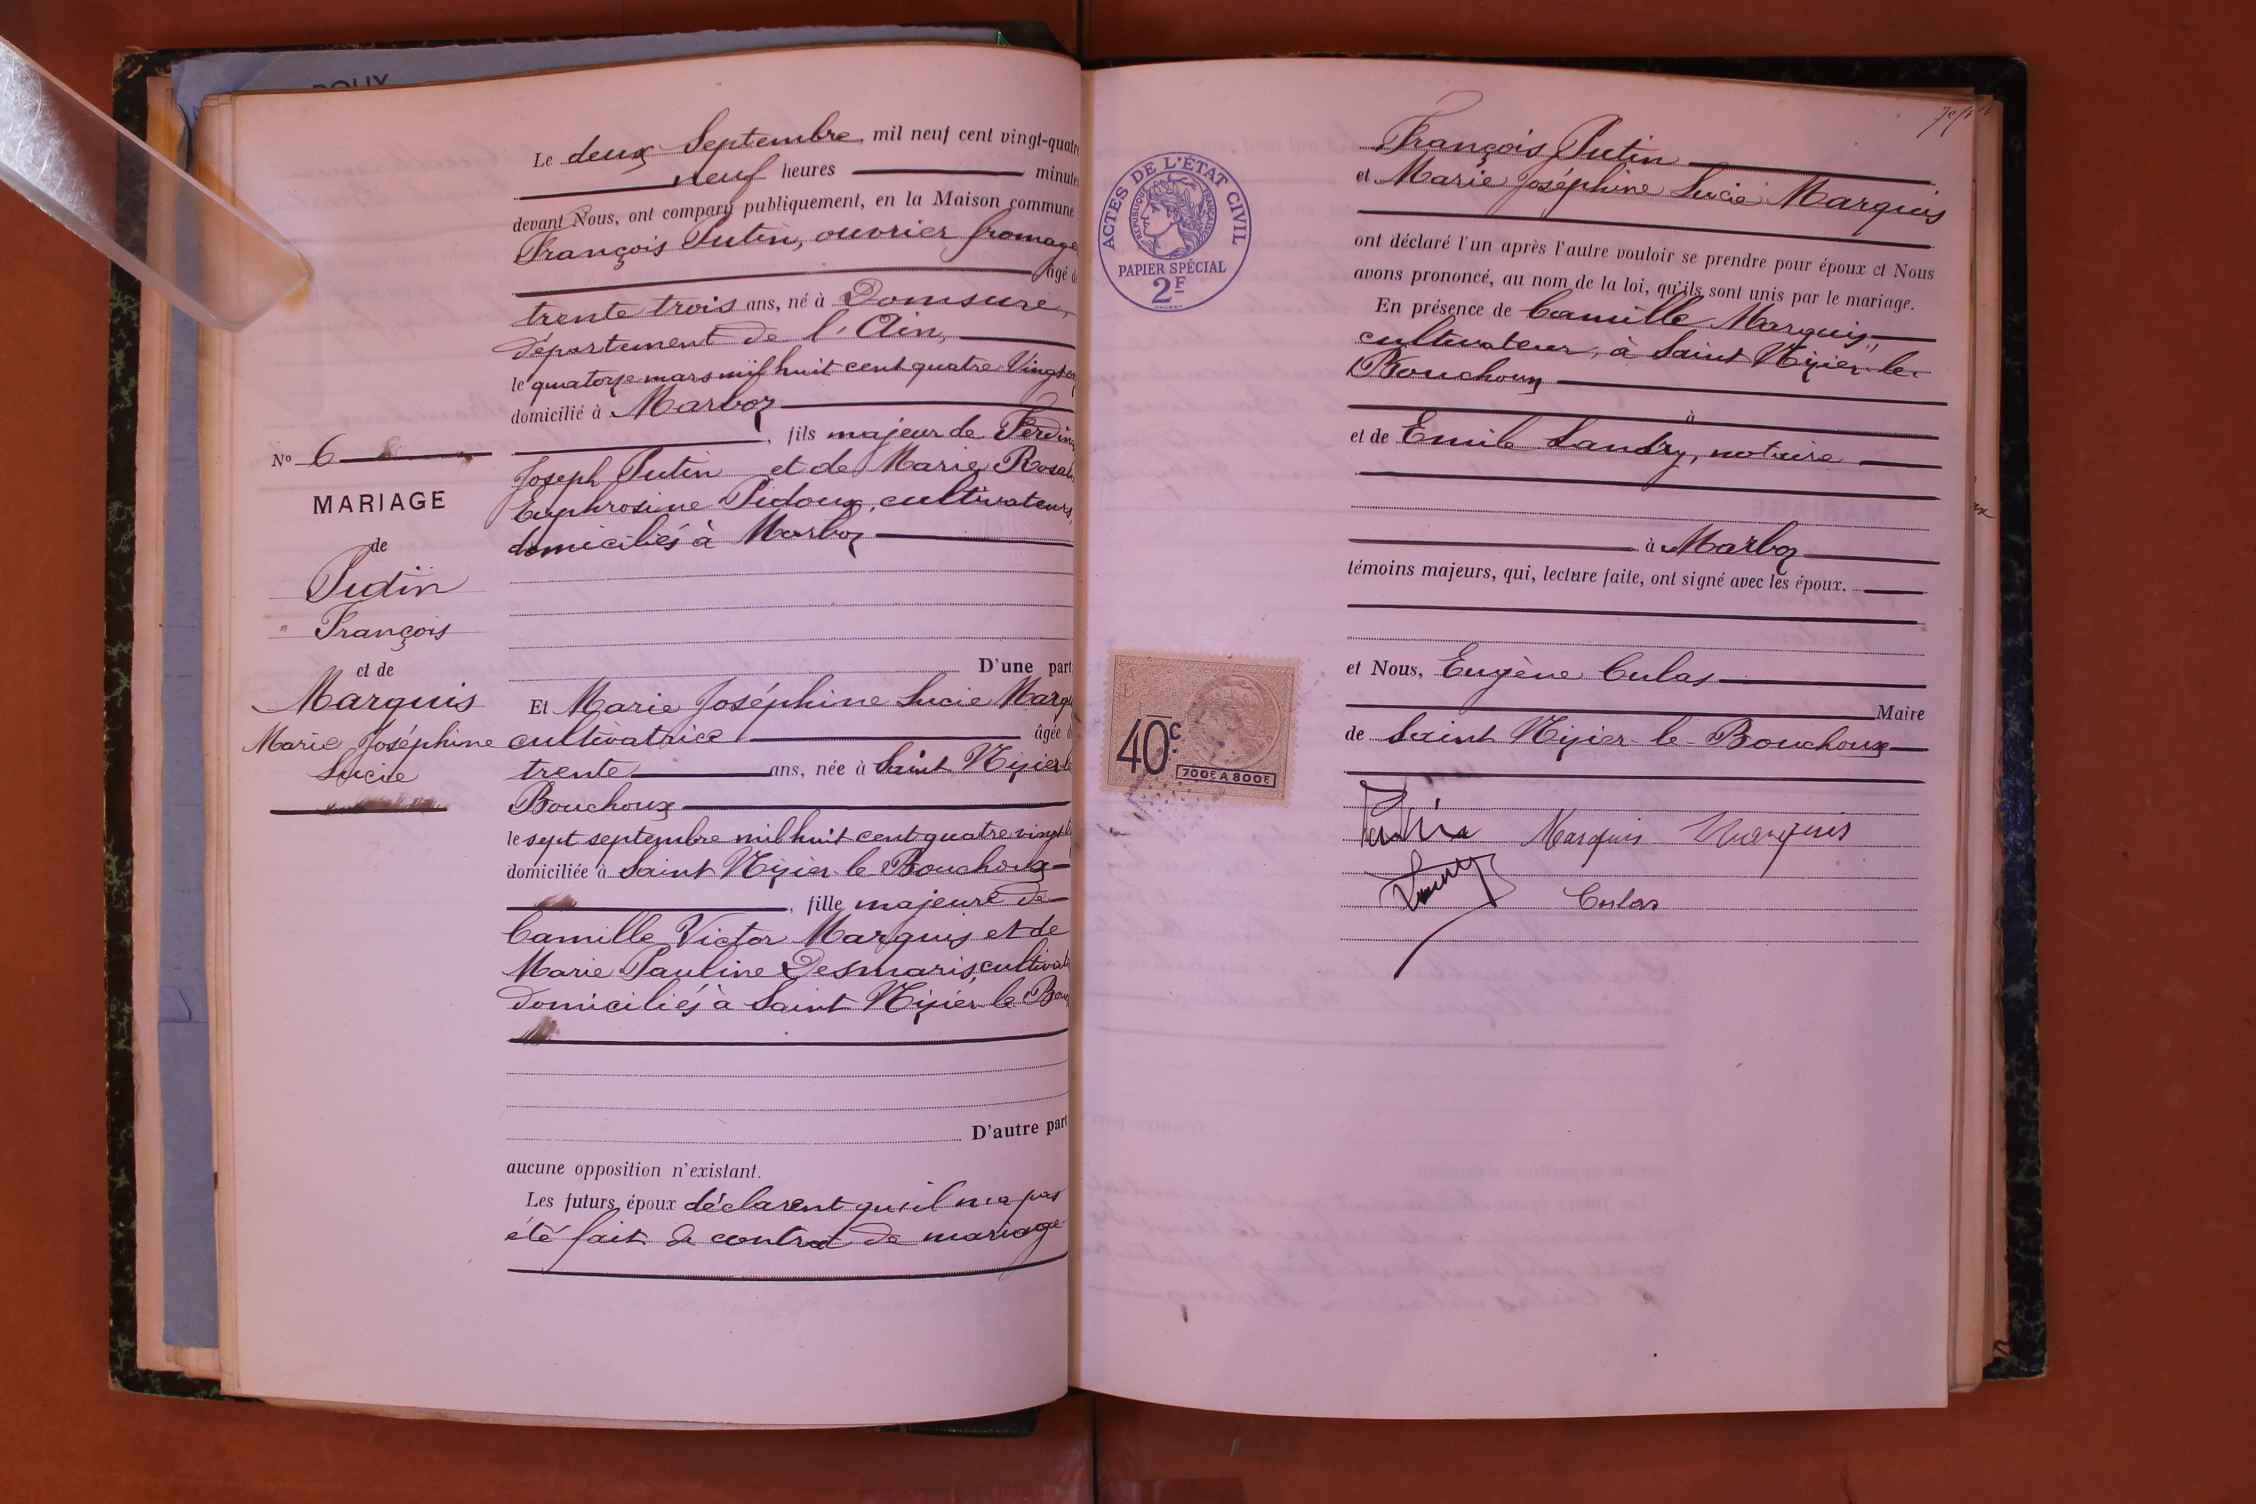 DOUX
Le deux Septembre mil neuf cent vingt-quatre
neuf heures minutes
devant Nous, ont comparu publiquement, en la Maison commune
François Putin, ouvrier fromage
âgé d
trente trois ans, né à Domsure,
département de l'Ain,
le quatorze mars mil huit cent quatre Vingt
domicilié à Marboz
, fils majeur de Ferdin
Joseph Putin et de Marie Rosal
Euphrosine Pidoux, cultivateurs,
domiciliés à Marboz
D'une part
Et Marie Joséphine Lucie Marqu
cultivatrice âgée d
trente ans, née à Saint Nizier l
Bouchoux
le sept septembre mil huit cent quatre vingt
domiciliée à Saint Nizier le Bouchoux
, fille majeure de
Camille Victor Marquis et de
Marie Pauline Desmaris, cultivat
domiciliés à Saint Nizier le Bou
D'autre part
aucune opposition n'existant.
Les futurs époux déclarent qu'il n'a pas
été fait de contrat de mariage
No 6
MARIAGE
de
Putin
François
et de
Marquis
Marie Joséphine
Lucie
ACTES DE L'ÉTAT CIVIL
RÉPUBLIQUE FRANÇAISE
PAPIER SPÉCIAL
2F
40c.
700F A 800F
François Putin
et Marie Joséphine Lucie Marquis
ont déclaré l'un après l'autre vouloir se prendre pour époux et Nous
avons prononcé, au nom de la loi, qu'ils sont unis par le mariage.
En présence de Camille Marquis,
cultivateur, à Saint Nizier-le-
Bouchoux
à
et de Emile Landry, notaire
à Marboz
témoins majeurs, qui, lecture faite, ont signé avec les époux.
et Nous, Eugène Culas
Maire
de Saint Nizier-le-Bouchoux
Putin Marquis Marquis
Landry Culas